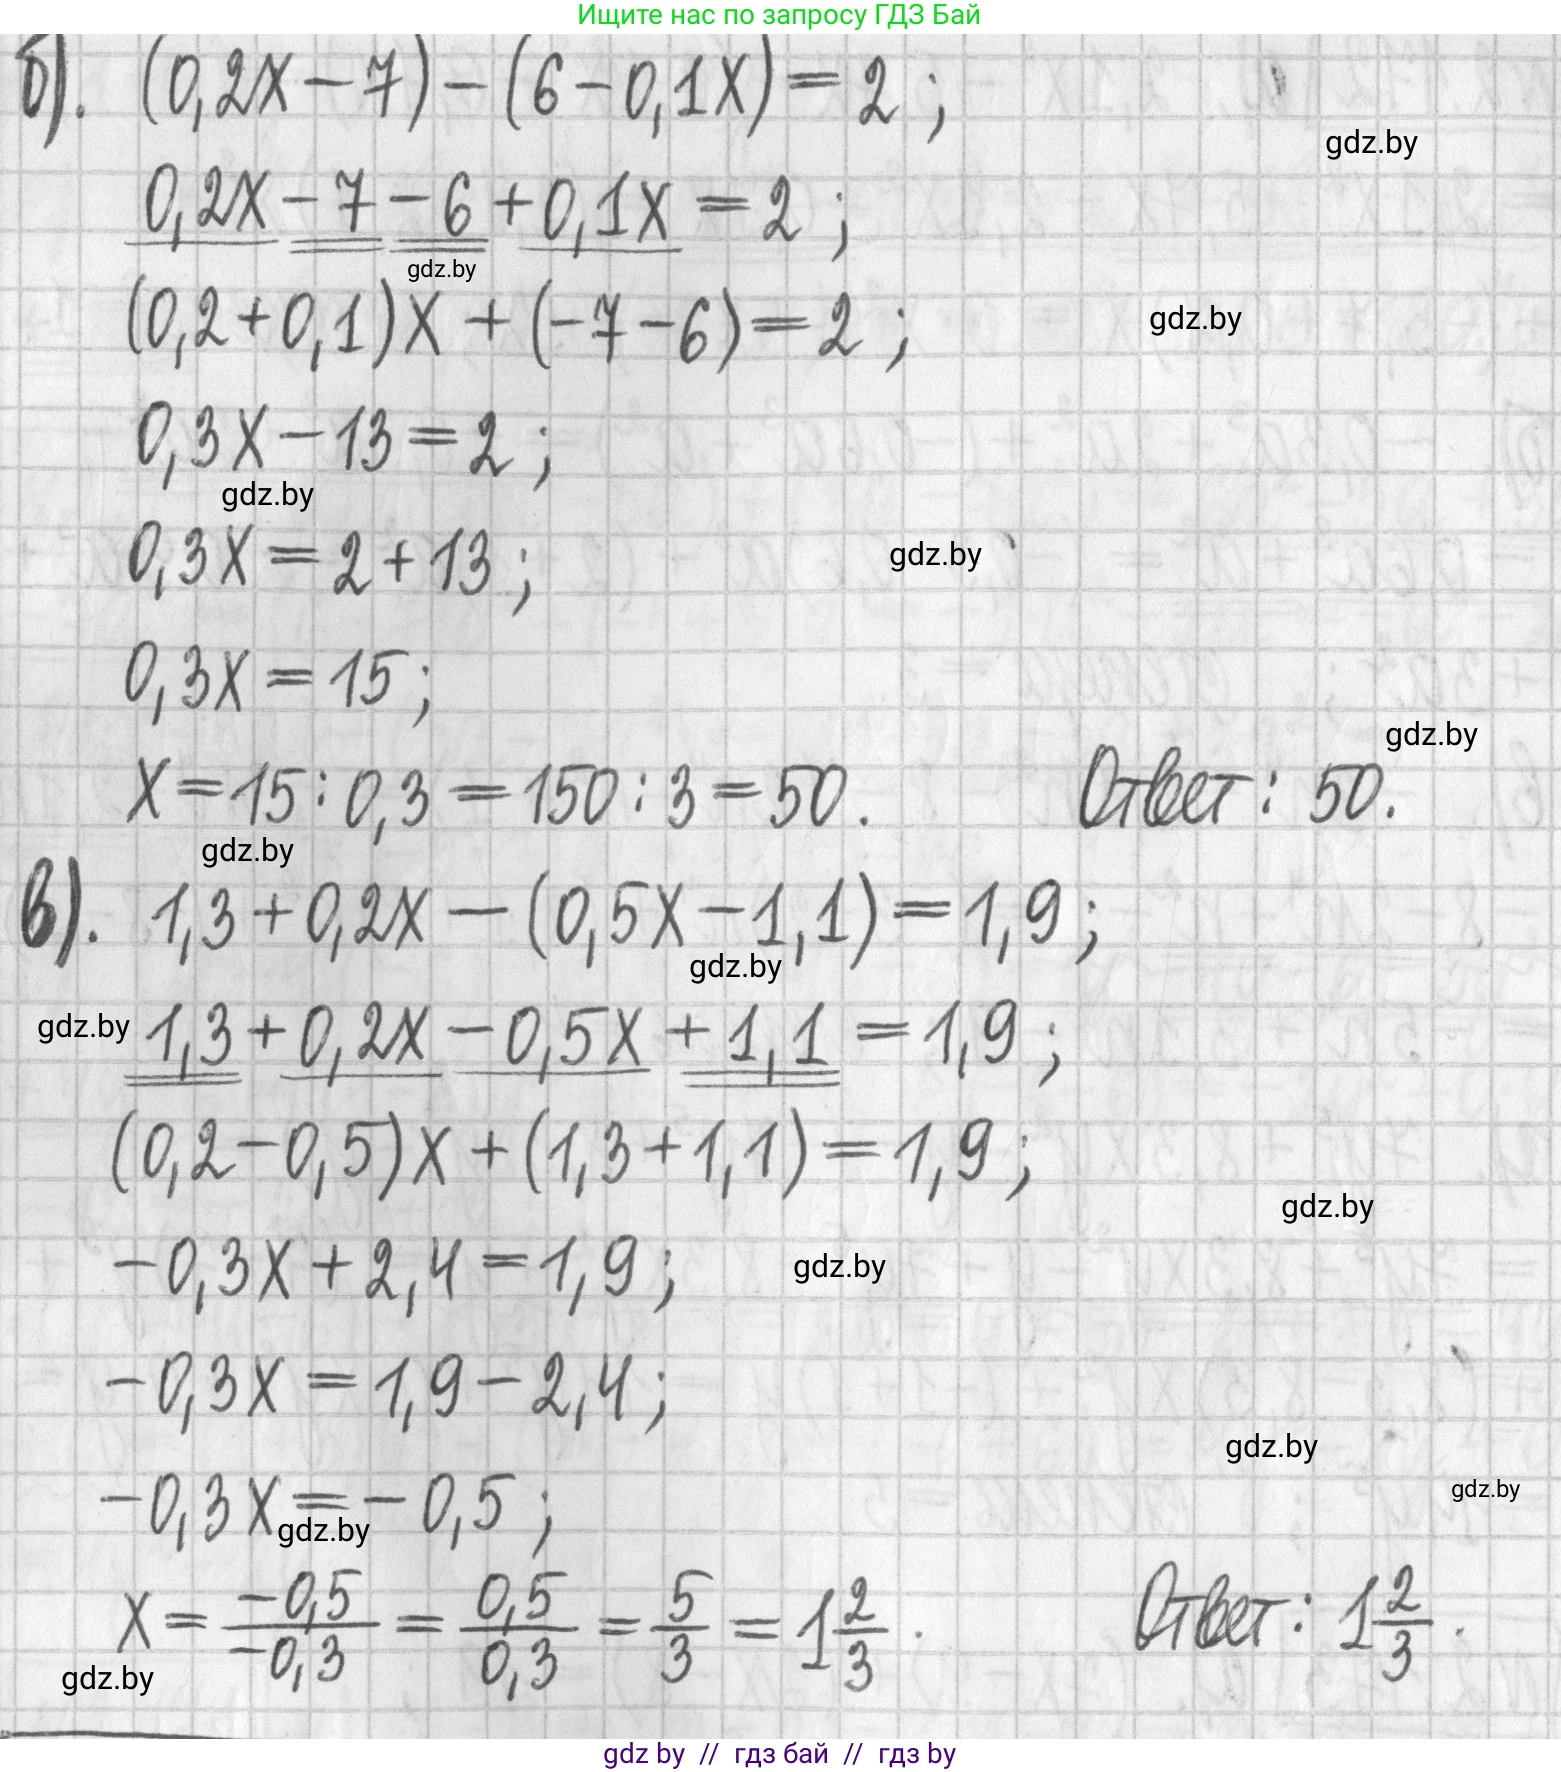 Ищите нас по запросу ГДЗ Бай
б). (0,2x-7)-(6-0,1x)=2;
gdz.by
0,2x-7-6+0,1x=2;
gdz.by
(0,2+0,1)x+(-7-6)=2;
gdz.by
0,3x-13=2;
gdz.by
0,3x=2+13;
gdz.by
0,3x=15;
gdz.by
x=15:0,3=150:3=50. Ответ: 50.
gdz.by
в). 1,3+0,2x-(0,5x-1,1)=1,9;
gdz.by
gdz.by 1,3+0,2x-0,5x+1,1=1,9;
(0,2-0,5)x+(1,3+1,1)=1,9;
gdz.by
-0,3x+2,4=1,9; gdz.by
-0,3x=1,9-2,4;
gdz.by
gdz.by
-0,3x=-0,5;
gdz.by
x=\frac{-0,5}{-0,3}=\frac{0,5}{0,3}=\frac{5}{3}=1\frac{2}{3}. Ответ: 1\frac{2}{3}.
gdz.by
gdz by // гдз бай // гдз by